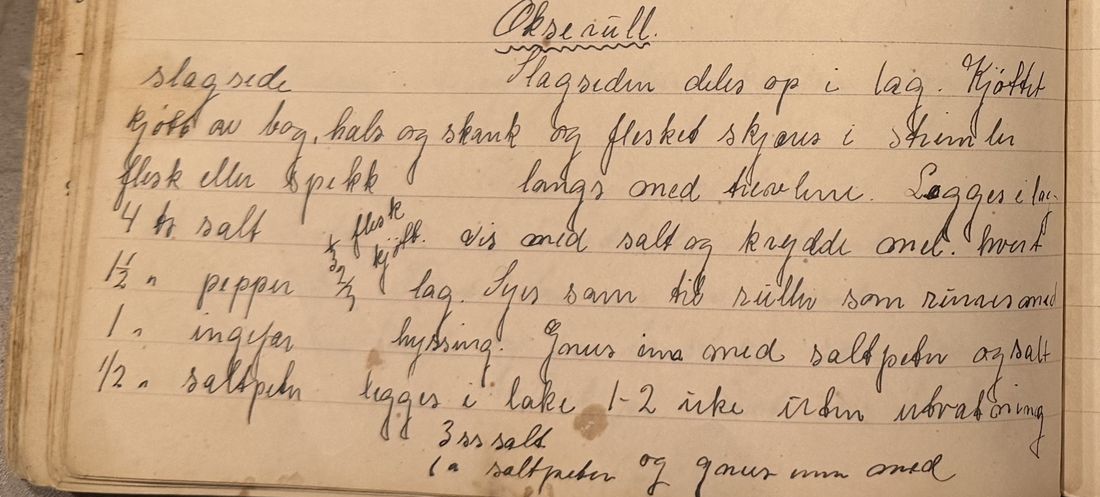 Okserull.
slagsede Slagseden deles op i lag. Kjøttet
kjøtt av bog, hals og skank og flesket skjæres i strimler
flesk eller spekk langs med trevlene. Legges i lag-
4 ts salt 1/3 flesk 2/3 kjøtt. vis med salt og krydde mel. hvert
1 1/2 " pepper lag. Syes sam til ruller som rimes med
1 " ingefær hyssing. Gnies inn med saltpeter og salt
1/2 " saltpeter legges i lake 1-2 uke uten utvatning
3 ss salt
1 " saltpeter og gnies inn med